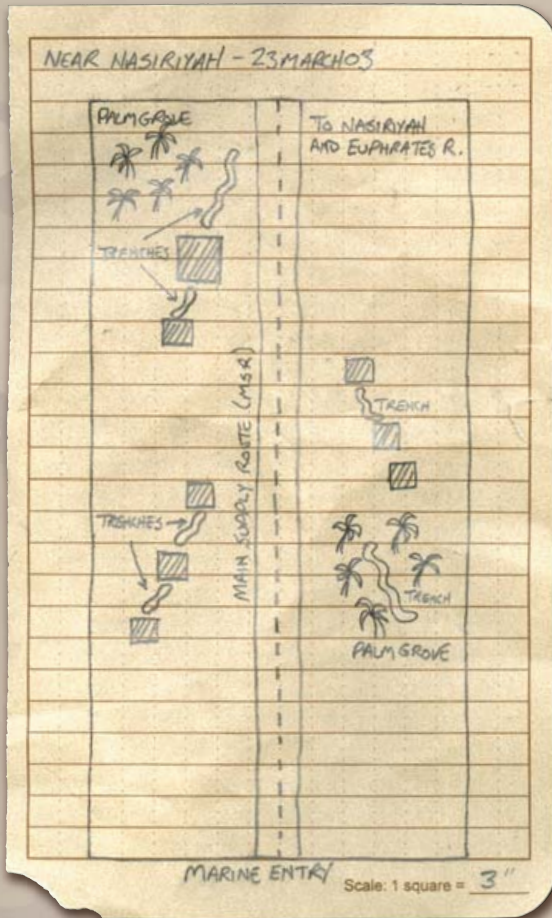 NEAR NASIRIYAH - 23MARCH03
PALM GROVE
TO NASIRIYAH
AND EUPHRATES R.
TRENCHES
MAIN SUPPLY ROUTE (MSR)
TRENCH
TRENCHES
TRENCH
PALM GROVE
MARINE ENTRY
Scale: 1 square = 3"